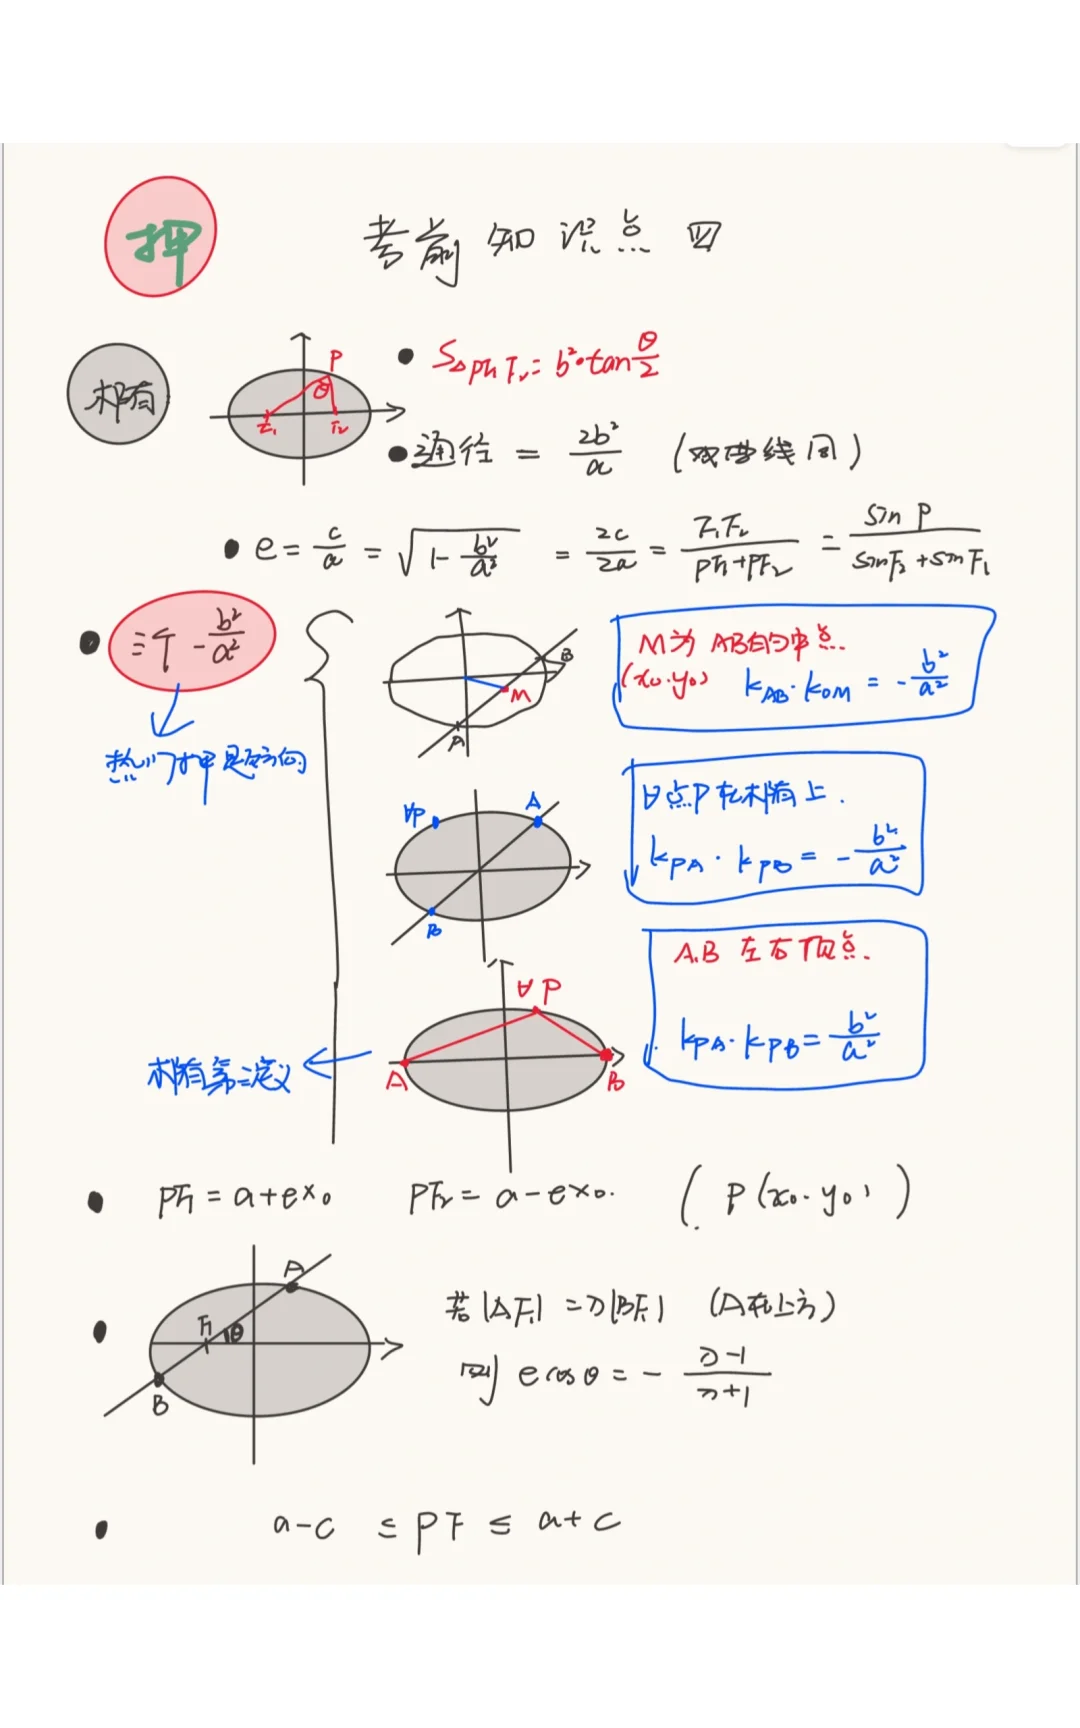 押
考前知识点四
椭圆
P
θ
F₁
F₂
• S△PF₁F₂=b²·tan θ/2
• 通径 = 2b²/a (双曲线同)
• e = c/a = √(1-b²/a²) = 2c/2a = F₁F₂/(PF₁+PF₂) = sin P/(sinF₂+sinF₁)
• 三个 -b²/a²
热门押题方向
B
M
A
M为AB的中点.
(x₀.y₀) k_AB·k_OM = -b²/a²
∀P
A
B
∀点P在椭圆上.
k_PA·k_PB = -b²/a²
∀P
A
B
A.B 左右顶点.
k_PA·k_PB = b²/a²
椭圆第三定义
• PF₁ = a+ex₀ PF₂ = a-ex₀. (P(x₀.y₀))
A
F₁
θ
B
• 若|AF₁| = λ|BF₁| (A在上方)
则 e cosθ = - (λ-1)/(λ+1)
• a-c ≤ PF ≤ a+c